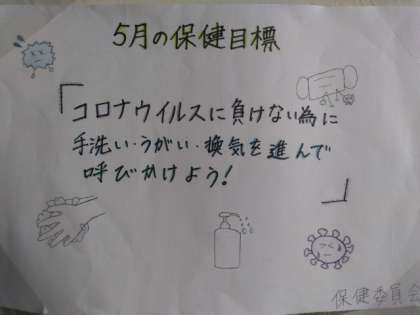 5月の保健目標
「コロナウイルスに負けない為に
手洗い・うがい・換気を進んで
呼びかけよう!」
保健委員会